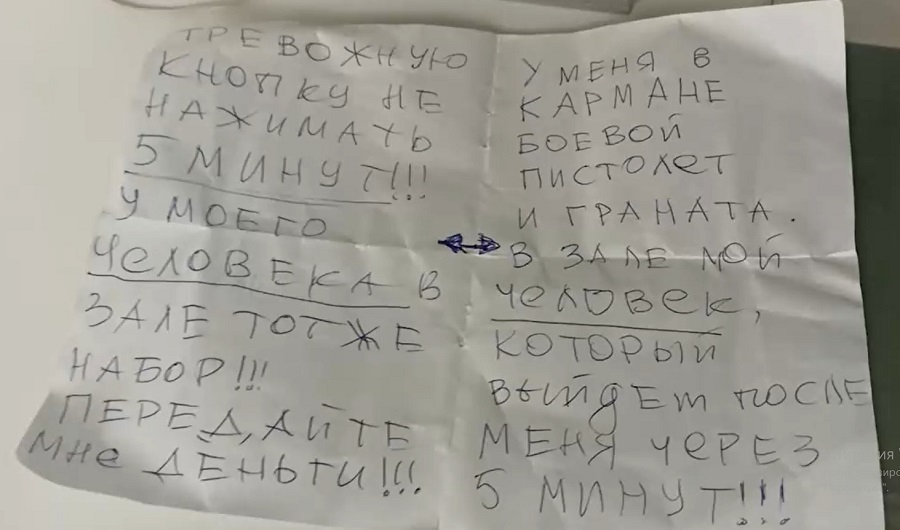 ТРЕВОЖНУЮ
КНОПКУ НЕ
НАЖИМАТЬ
5 МИНУТ!!!
У МОЕГО
ЧЕЛОВЕКА В
ЗАЛЕ ТОТЖЕ
НАБОР!!!
ПЕРЕДАЙТЕ
МНЕ ДЕНЬГИ!!!
У МЕНЯ В
КАРМАНЕ
БОЕВОЙ
ПИСТОЛЕТ
И ГРАНАТА.
В ЗАЛЕ МОЙ
ЧЕЛОВЕК,
КОТОРЫЙ
ВЫЙДЕТ ПОСЛЕ
МЕНЯ ЧЕРЕЗ
5 МИНУТ!!!